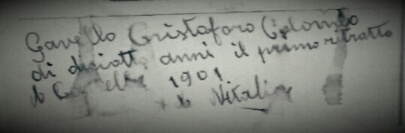 Gavello Cristoforo Colombo
di diciott anni il primo ritratto
1901
Vitali